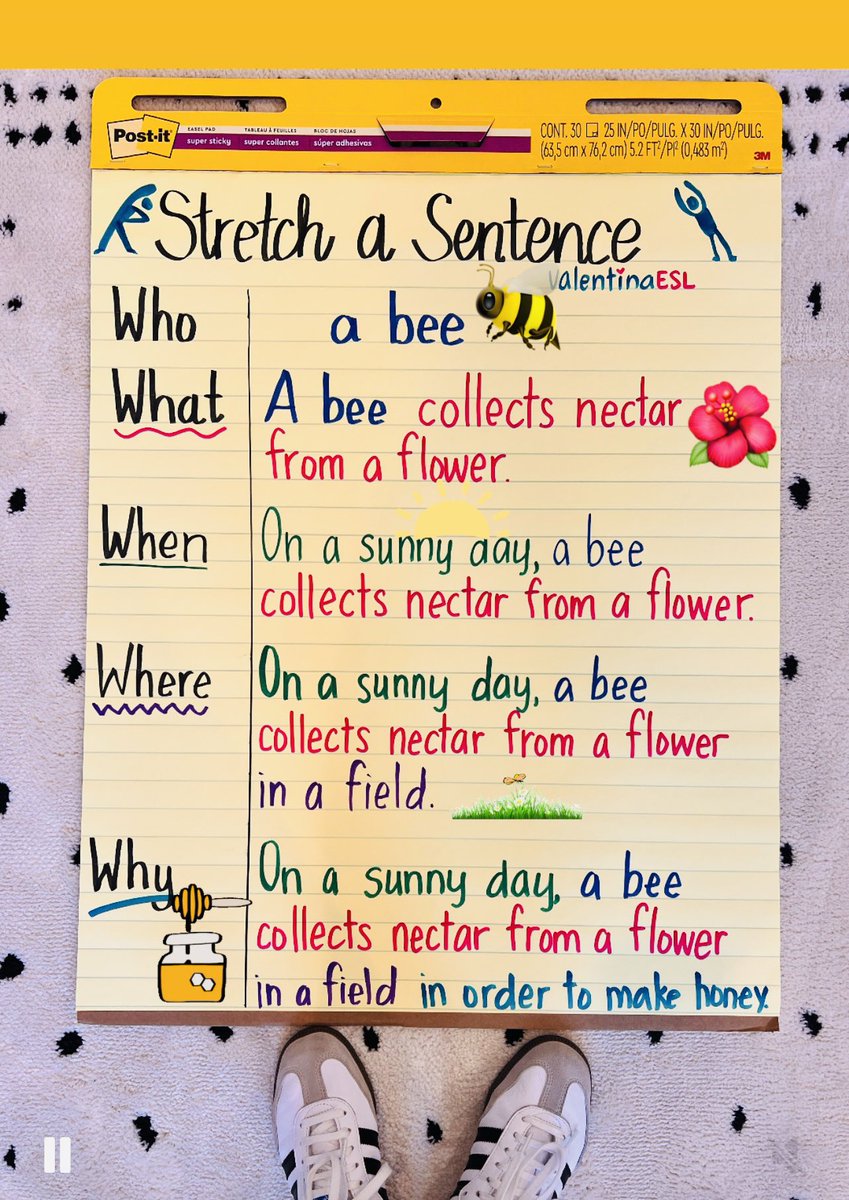 Post-it
EASEL PAD
super sticky
TABLEAU À FEUILLES
super collantes
BLOC DE HOJAS
súper adhesivas
CONT. 30 25 IN/PO/PULG. X 30 IN/PO/PULG.
(63,5 cm x 76,2 cm) 5.2 FT²/PI² (0,483 m²)
3M
Stretch a Sentence
ValentinaESL
Who
a bee
What
A bee collects nectar
from a flower.
When
On a sunny day, a bee
collects nectar from a flower.
Where
On a sunny day, a bee
collects nectar from a flower
in a field.
Why
On a sunny day, a bee
collects nectar from a flower
in a field in order to make honey.